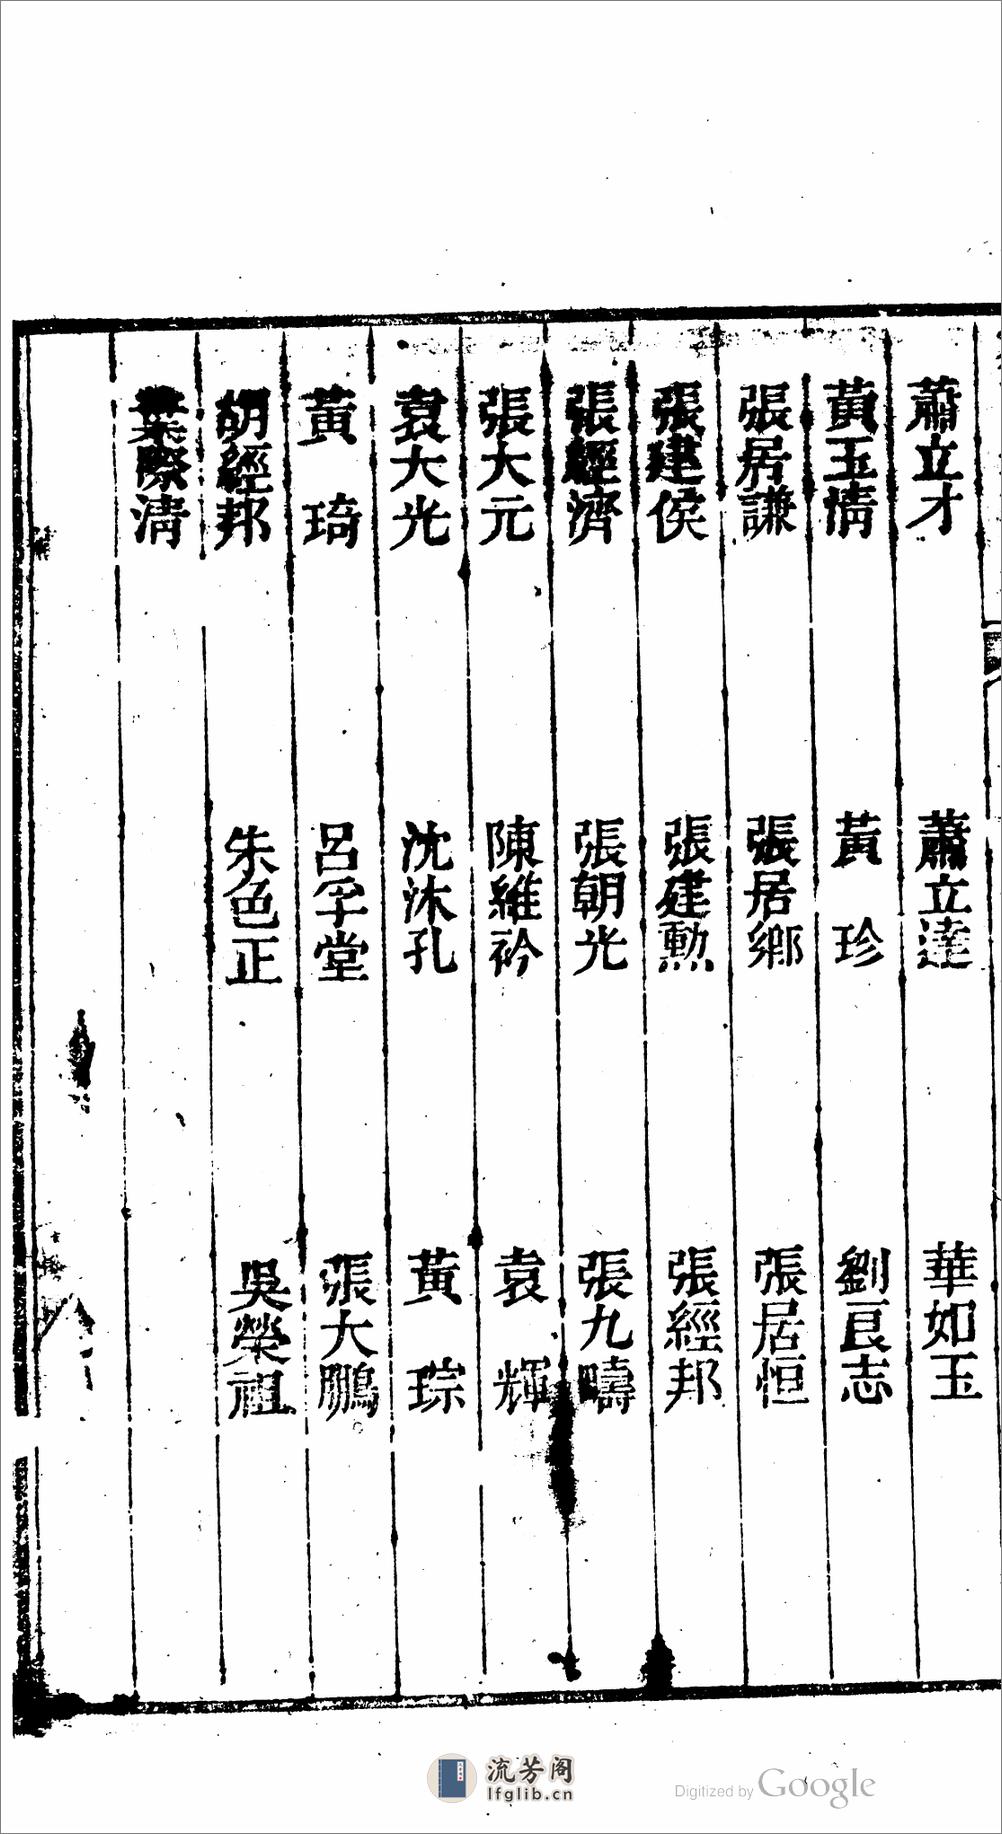 蕭立才　蕭立達　華如玉
黃玉情　黃珍　劉良志
張居謙　張居鄉　張居恒
張建侯　張建勲　張經邦
張經濟　張朝光　張九疇
張大元　陳維衿　袁輝
袁大光　沈沐孔　黃琮
黃琦　呂孚堂　張大鵬
胡經邦　朱色正　吳榮祖
葉際清
流芳阁
lfglib.cn
Digitized by Google